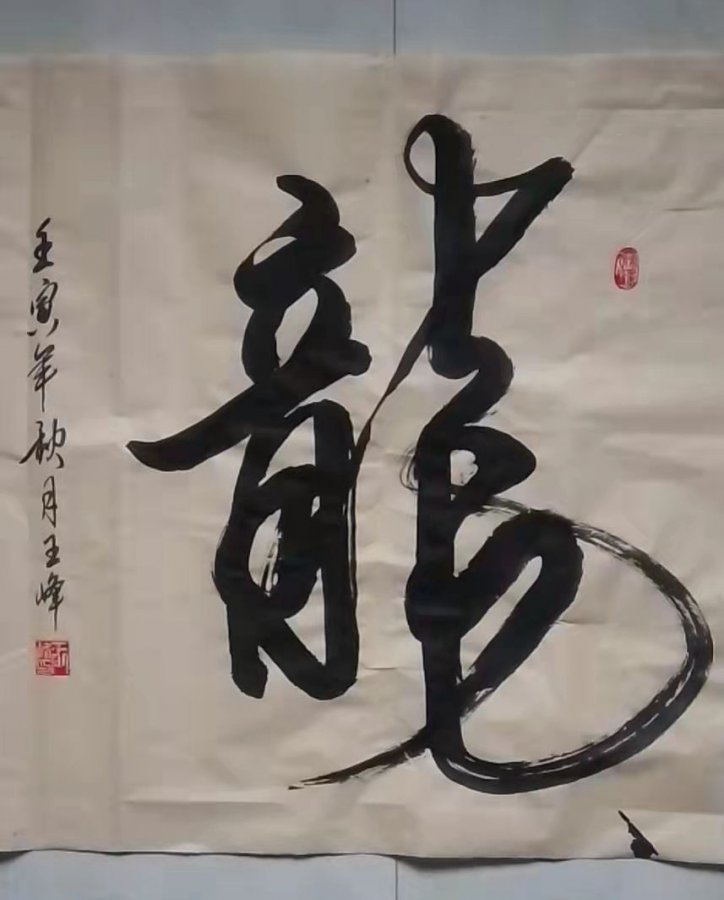 龍
壬寅年秋月王峰